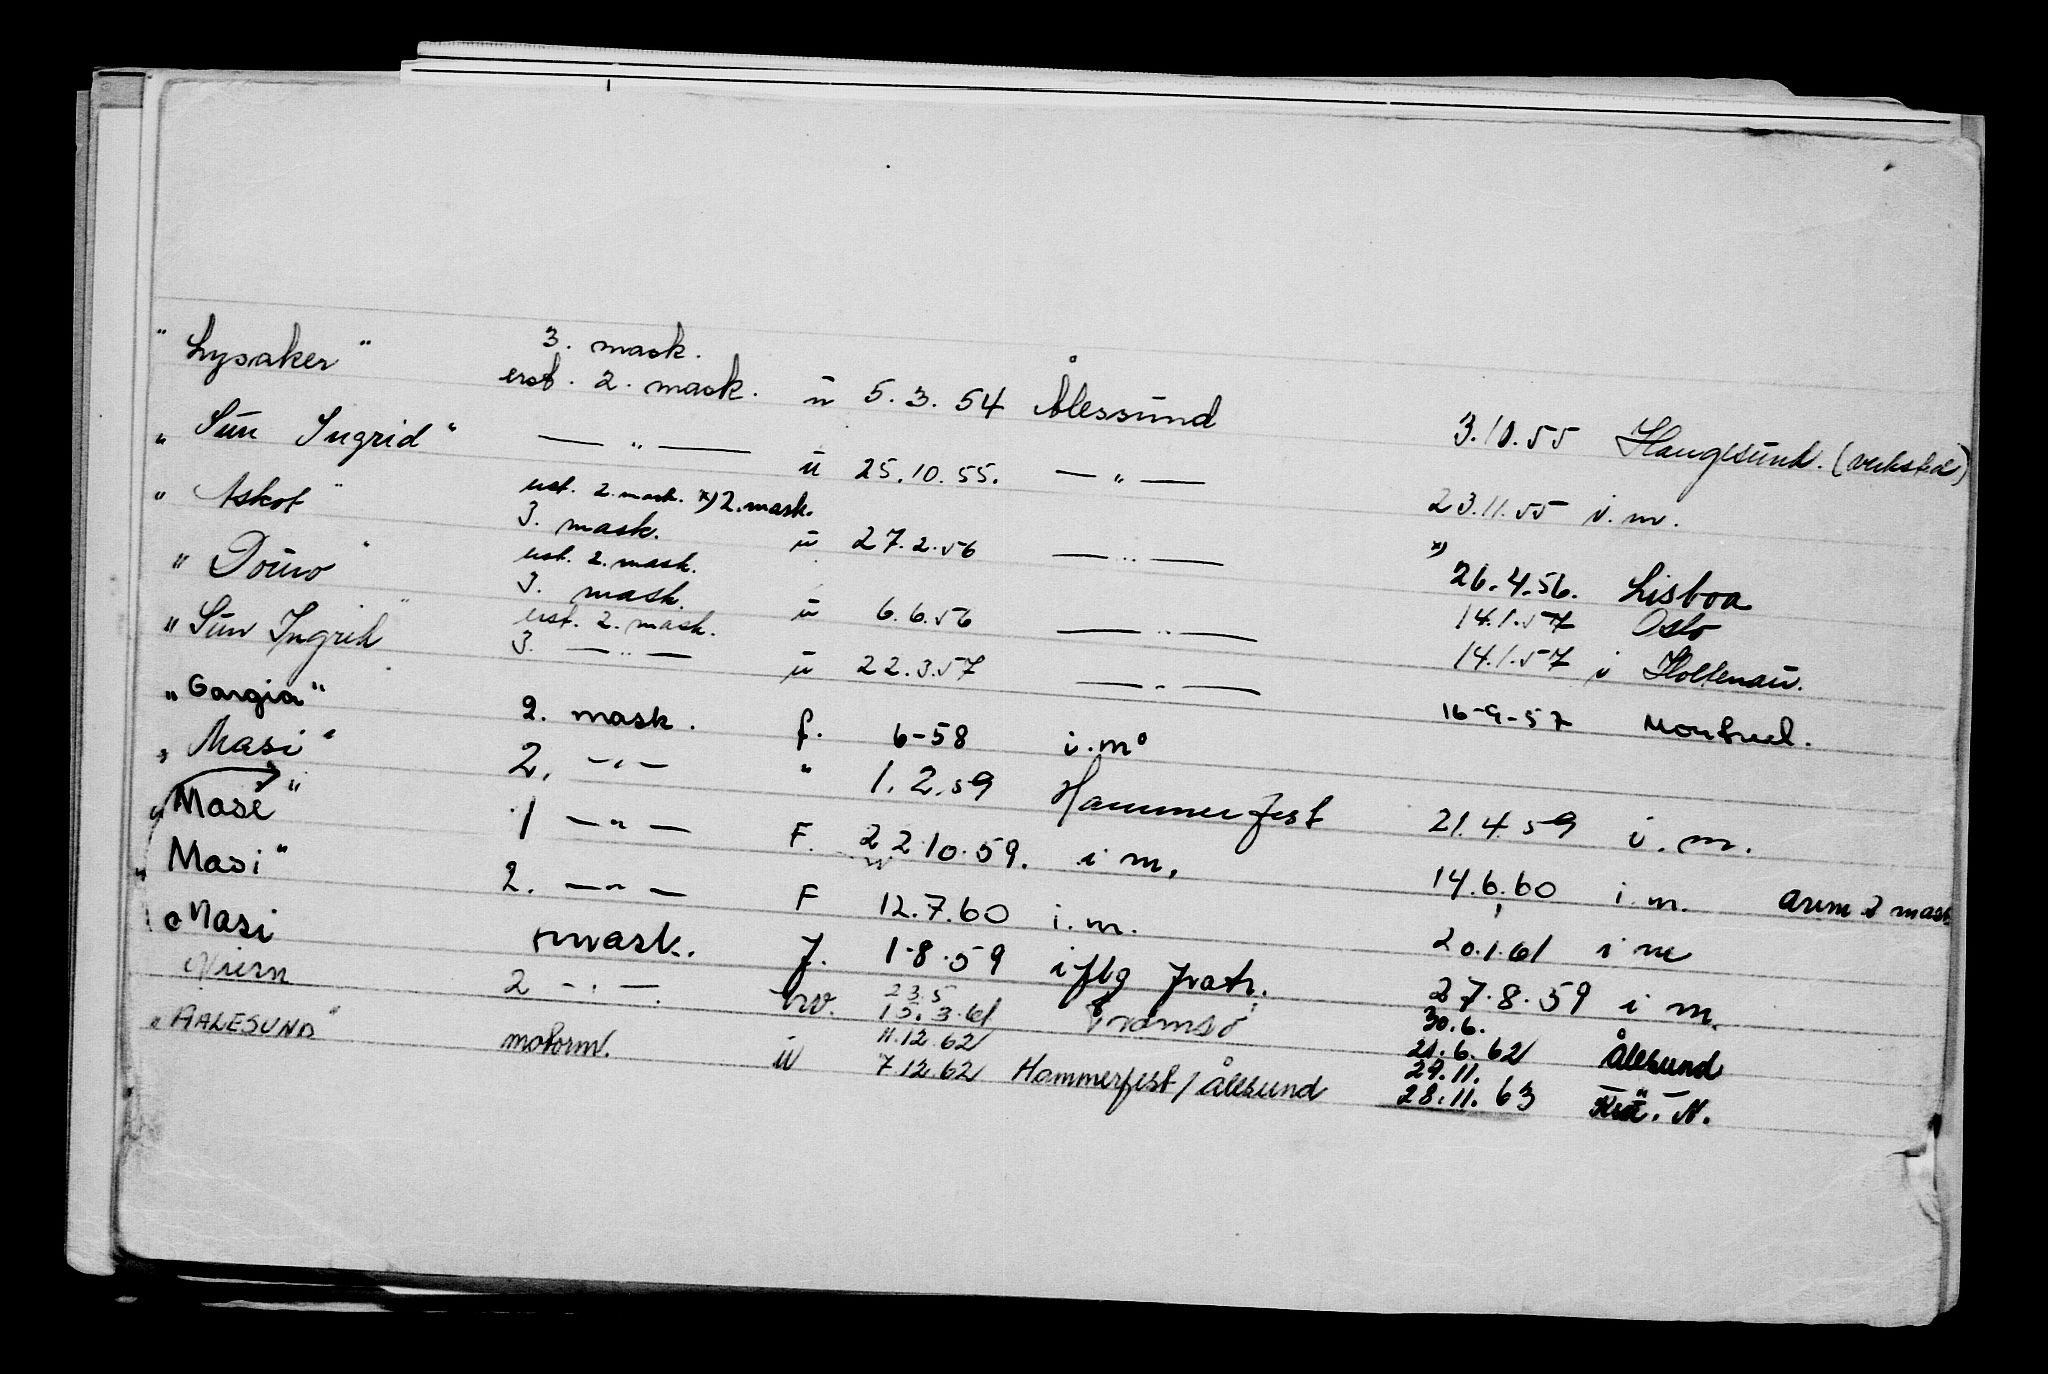 "Lysaker" 3. mask.
erst. 2. mask. u 5.3.54 Ålessund 3.10.55 Haugesund. (verksted)
"Sun Ingrid" — " — u 25.10.55. — " — 23.11.55 i.m.
"Askot" erst. 2. mask. x) 2. mask.
3. mask. u 27.2.56 — " — x) 26.4.56. Lisboa
"Douro" erst. 2. mask. 14.1.57 Oslo
3. mask. u 6.6.56 — " — 14.1.57 i Holtenau.
"Sun Ingrid" erst. 2. mask.
3. — " — u 22.3.57 — " — 16-9-57 Montreal.
"Gargia" 2. mask. f. 6-58 i.m.
"Masi" 2. — " — " 1.2.59 Hammerfest 21.4.59 i.m.
"Mase" 1 — " — F. 22.10.59. i m. 14.6.60 i.m. avm 2 mask
"Masi" 2. — " — F 12.7.60 i.m. 20.1.61 i m
Masi mask. f. 1-8.59 iflg fratr. 27.8.59 i m.
2 — " — 23.5 30.6.
15.3.61 Tromsø 21.6.62 Ålesund
"AALESUND" motorm. u 11.12.62 29.11. — " —
7.12.62 Hammerfest / Ålesund 28.11.63 Krst. N.